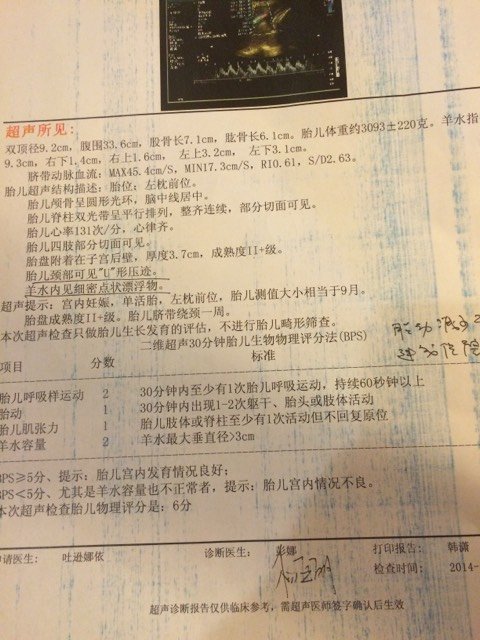 超声所见:
双顶径9.2cm, 腹围33.6cm, 股骨长7.1cm, 肱骨长6.1cm。胎儿体重约3093±220克。羊水指
9.3cm, 右下1.4cm, 右上1.6cm, 左上3.2cm, 左下3.1cm。
脐带动脉血流: MAX45.4cm/S, MIN17.3cm/S, RI0.61, S/D2.63。
胎儿超声结构描述: 胎位: 左枕前位。
胎儿颅骨呈圆形光环, 脑中线居中。
胎儿脊柱双光带呈平行排列, 整齐连续, 部分切面可见。
胎儿心率131次/分, 心律齐。
胎儿四肢部分切面可见。
胎盘附着在子宫后壁, 厚度3.7cm, 成熟度II+级。
胎儿颈部可见"U"形压迹。
羊水内见细密点状漂浮物。
超声提示: 宫内妊娠, 单活胎, 左枕前位, 胎儿测值大小相当于9月。
胎盘成熟度II+级。胎儿脐带绕颈一周。
本次超声检查只做胎儿生长发育的评估, 不进行胎儿畸形筛查。
二维超声30分钟胎儿生物物理评分法(BPS)
项目 分数 标准
胎儿呼吸样运动 2 30分钟内至少有1次胎儿呼吸运动, 持续60秒钟以上
胎动 1 30分钟内出现1-2次躯干、胎头或肢体活动
胎儿肌张力 1 胎儿肢体或脊柱至少有1次活动但不回复原位
羊水容量 2 羊水最大垂直径>3cm
BPS≥5分、提示; 胎儿宫内发育情况良好;
BPS<5分、尤其是羊水容量也不正常者, 提示; 胎儿宫内情况不良。
本次超声检查胎儿物理评分是: 6分
申请医生: 吐逊娜依 诊断医生: 彭娜 打印报告: 韩潇
检查时间: 2014-
超声诊断报告仅供临床参考, 需超声医师签字确认后生效